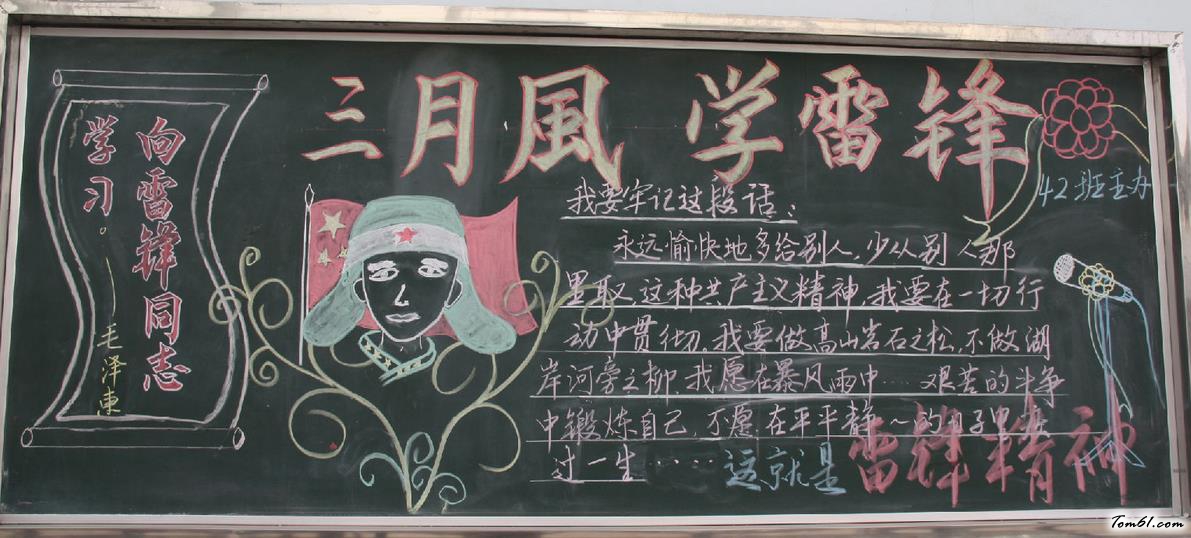 三月風 学雷锋
向雷锋同志
学习。——毛泽東
42班主办
我要牢记这段话：
永远愉快地多给别人，少从别人那
里取，这种共产主义精神，我要在一切行
动中贯彻。我要做高山岩石之松，不做湖
岸河旁之柳。我愿在暴风雨中……艰苦的斗争
中锻炼自己，不愿在平平静～的日子里
过一生……这就是雷锋精神
Tom61.com